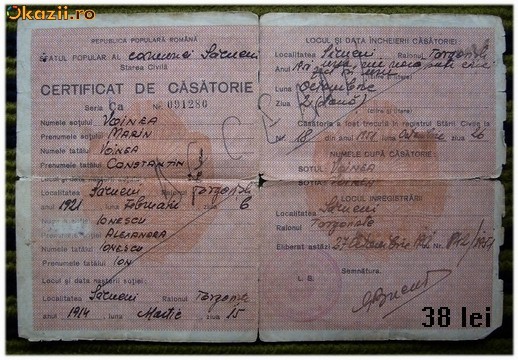 Okazii.ro
REPUBLICA POPULARĂ ROMÂNĂ
SFATUL POPULAR AL comunei Săcueni
Starea Civilă
CERTIFICAT DE CĂSĂTORIE
Seria Ca № 091280
Numele soțului VOINEA
Prenumele soțului MARIN
Numele tatălui VOINEA
Prenumele tatălui CONSTANTIN
Localitatea Săcueni Raionul
anul 1921 luna Februarie ziua 6
IONESCU
ALEXANDRA
Numele tatălui IONESCU
Prenumele tatălui ION
Locul și data nașterii soției
Localitatea Săcueni Raionul
anul 1914 luna Martie ziua 15
LOCUL ȘI DATA ÎNCHEIERII CĂSĂTORIEI
Localitatea Săcueni Raionul
Anul una mie nouă sute
zeci și unu
Luna Octombrie
Ziua 2 (două)
Căsătoria a fost trecută în registrul Stării Civile la
Nr. 18 din anul 1951 luna Octombrie ziua 26
NUMELE DUPĂ CĂSĂTORIE
SOȚUL VOINEA
SOȚIA VOINEA
LOCUL INREGISTRĂRII
Localitatea Săcueni
Raionul
Eliberat astăzi 27 Octombrie
L. S.
Semnătura,
38 lei